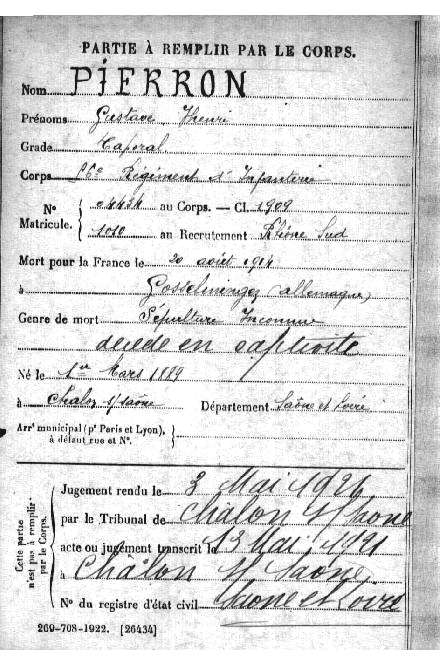 PARTIE À REMPLIR PAR LE CORPS.
Nom PIERRON
Prénoms Gustave Henri
Grade Caporal
Corps 56e Régiment d'Infanterie
No au Corps. — Cl. 1909
Matricule. 1010 au Recrutement Rhône Sud
Mort pour la France le 20 août 1914
à (allemagne)
Genre de mort Sépulture Inconnue
décédé en captivité
Né le 1er Mars 1889
à Chalon s/ Saône Département Saône et Loire
Arrt municipal (pr Paris et Lyon),
à défaut rue et No.
Cette partie
n'est pas à remplir
par le Corps.
Jugement rendu le 3 Mai 1921
par le Tribunal de Chalon s/ Saone
acte ou jugement transcrit le 13 Mai 1921
à Châlon s/ Saône
No du registre d'état civil Saone et Loire
269-708-1922. [26434]